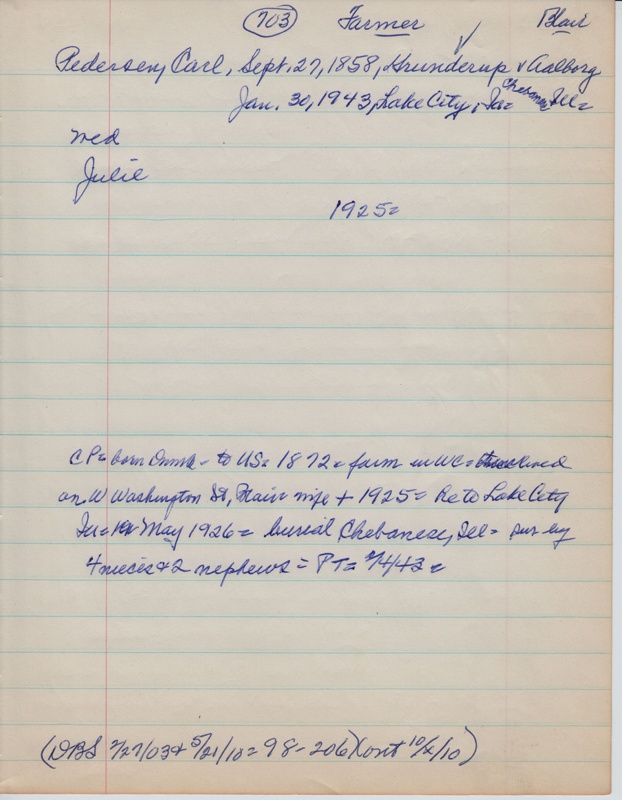 703 Farmer Blair
Pedersen, Carl, Sept. 27, 1858, Hrunderup v Aalborg
Jan. 30, 1943, Lake City, Ia= Chebanse Ill=
Wed
Julie
1925=
CP= born Dmk - to US= 1872= farm in WC= lived
on W Washington St, Blair= wife + 1925= he to Lake City
Ia= May 1926= burial Chebanese, Ill= sur by
4 nieces & 2 nephews = PT= 2/4/43=
(DBS 7/27/03 & 5/21/10= 98-206)(ont 10/x/10)